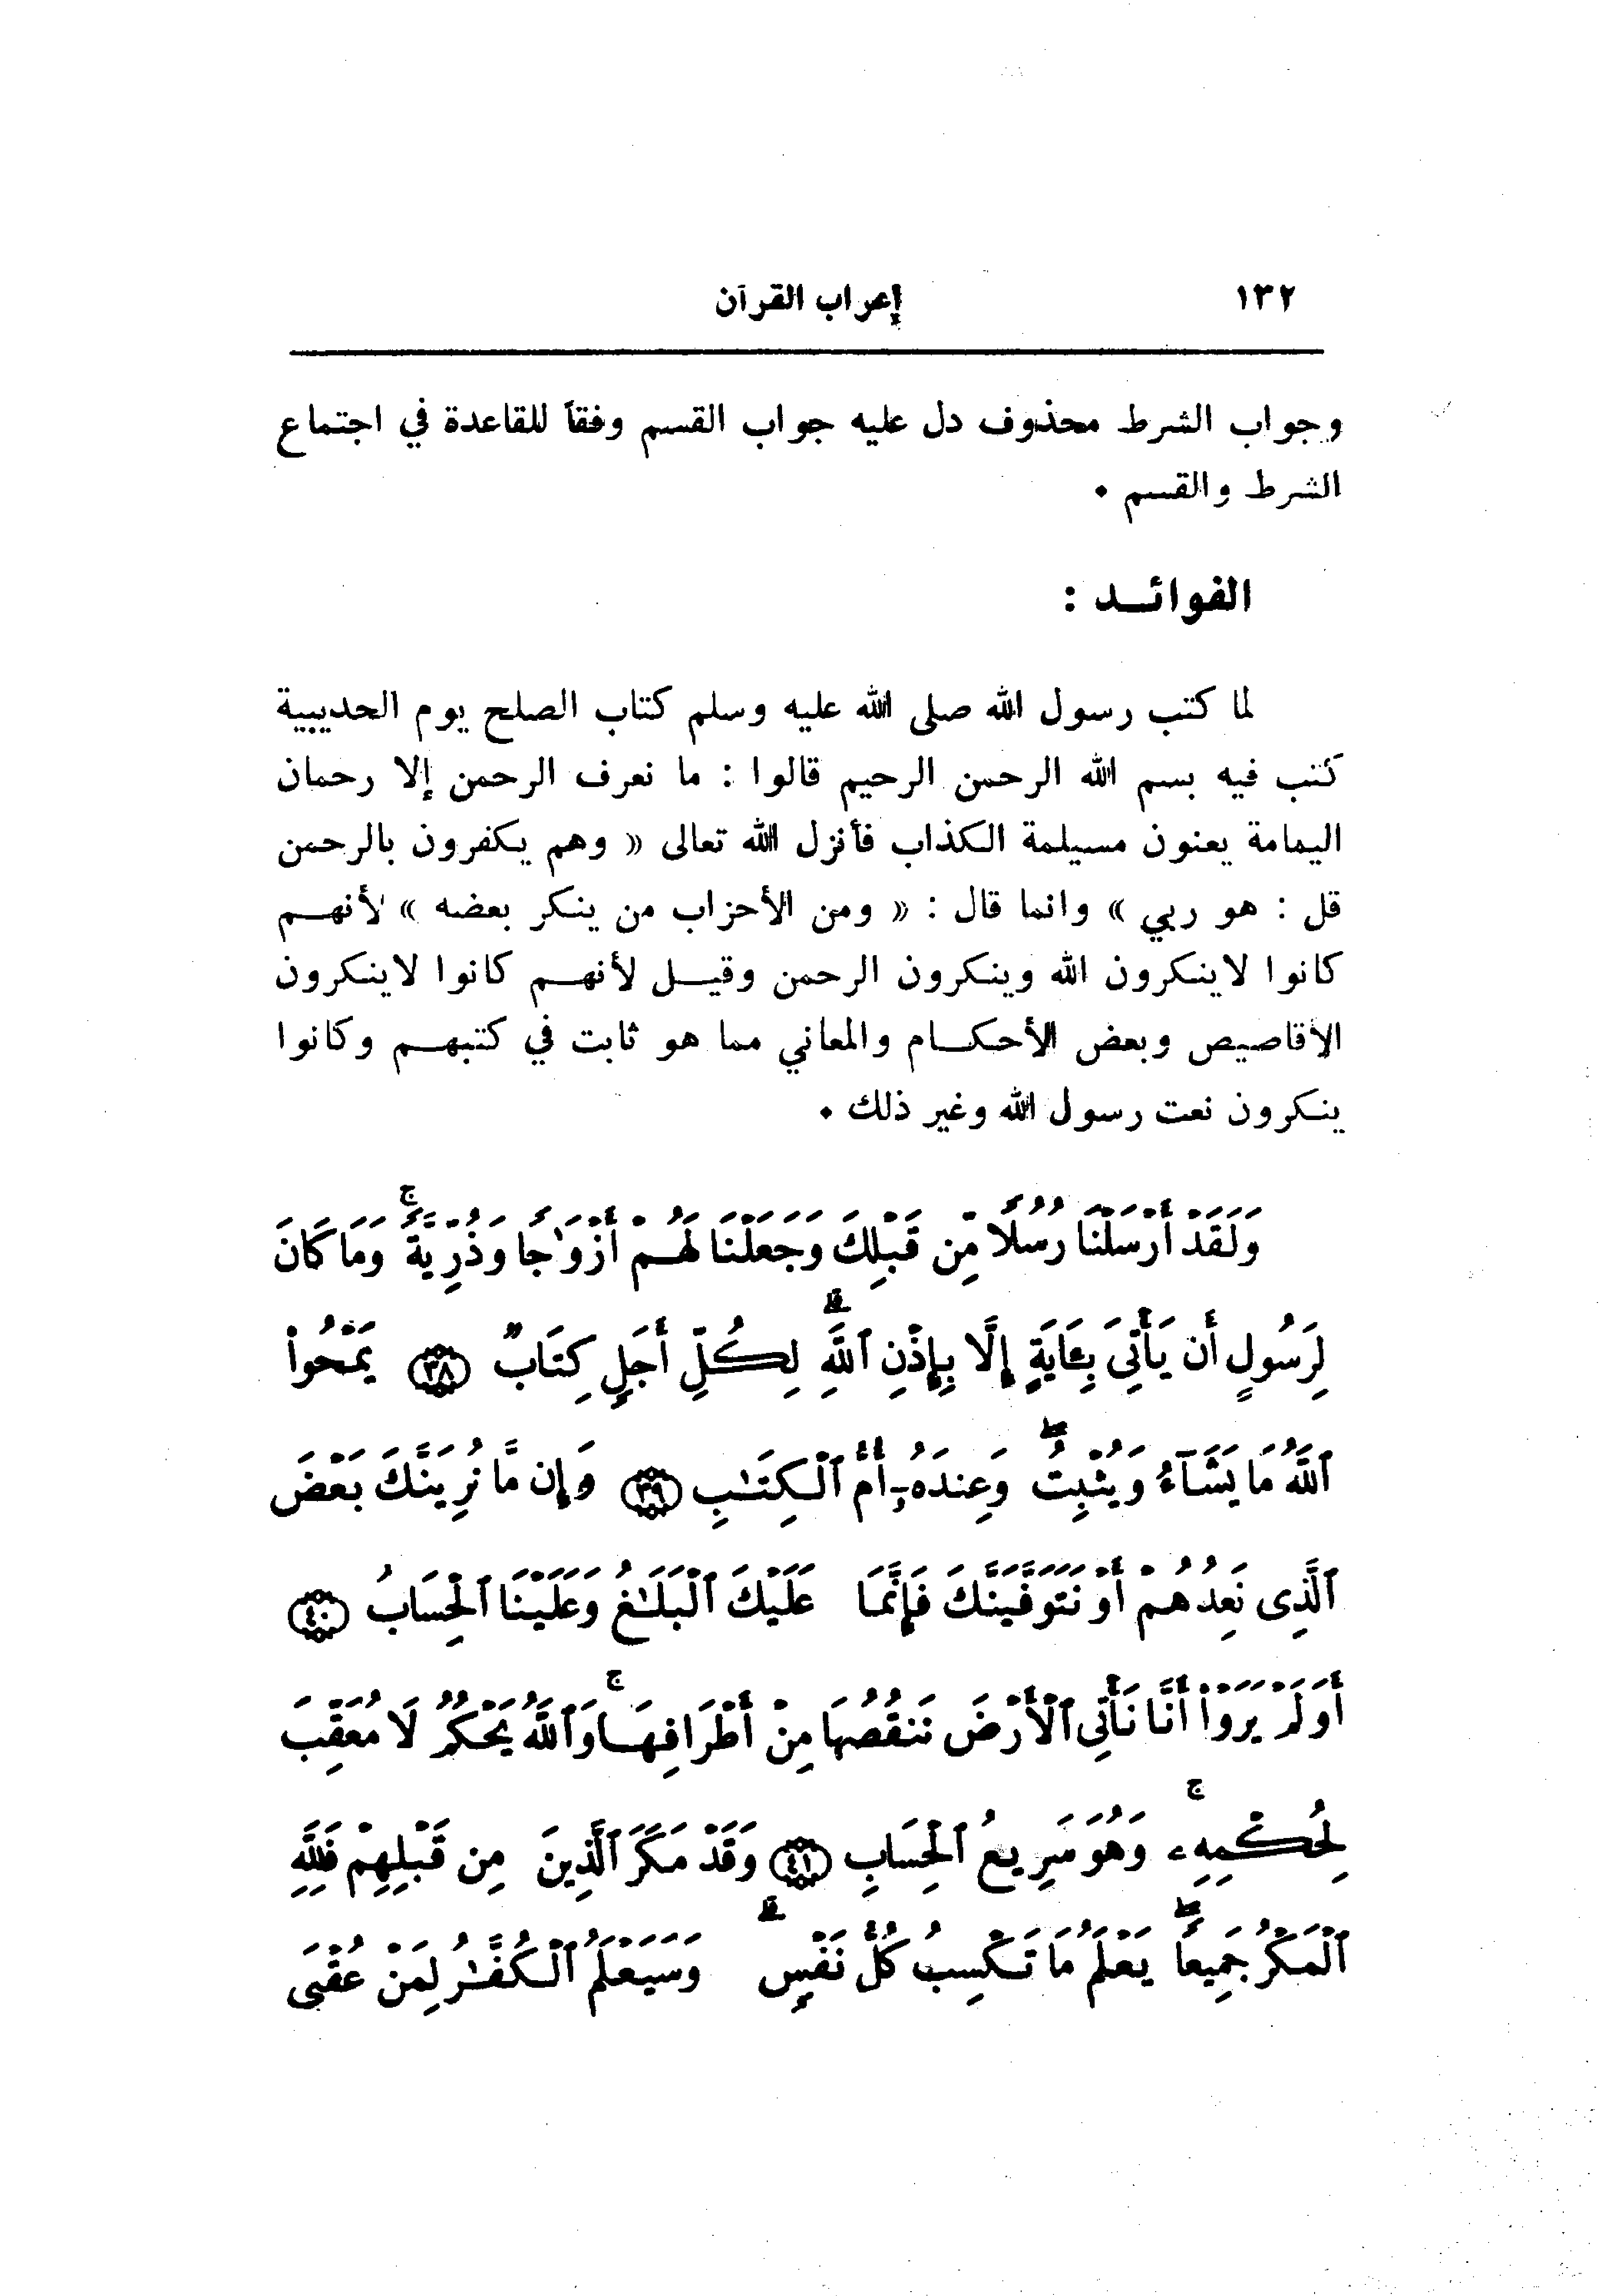 ١٣٢ إعراب القرآن
وجواب الشرط محذوف دل عليه جواب القسم وفقاً للقاعدة في اجتماع
الشرط والقسم ٠
الفوائـــد :
لما كتب رسول الله صلى الله عليه وسلم كتاب الصلح يوم الحديبية
كتب فيه بسم الله الرحمن الرحيم قالوا : ما نعرف الرحمن إلا رحمان
اليمامة يعنون مسيلمة الكذاب فأنزل الله تعالى « وهم يكفرون بالرحمن
قل : هو ربي » وانما قال : « ومن الأحزاب من ينكر بعضه » لأنهـــم
كانوا لاينكرون الله وينكرون الرحمن وقيــل لأنهــم كانوا لاينكرون
الأقاصيص وبعض الأحكــام والمعاني مما هو ثابت في كتبهــم وكانوا
ينكرون نعت رسول الله وغير ذلك ٠
وَلَقَدْ أَرْسَلْنَا رُسُلًا مِّن قَبْلِكَ وَجَعَلْنَا لَهُمْ أَزْوَٰجًا وَذُرِّيَّةً ۚ وَمَا كَانَ
لِرَسُولٍ أَن يَأْتِىَ بِـَٔايَةٍ إِلَّا بِإِذْنِ ٱللَّهِ ۗ لِكُلِّ أَجَلٍ كِتَابٌ ﴿٣٨﴾ يَمْحُوا۟
ٱللَّهُ مَا يَشَآءُ وَيُثْبِتُ ۖ وَعِندَهُۥٓ أُمُّ ٱلْكِتَـٰبِ ﴿٣٩﴾ وَإِن مَّا نُرِيَنَّكَ بَعْضَ
ٱلَّذِى نَعِدُهُمْ أَوْ نَتَوَفَّيَنَّكَ فَإِنَّمَا عَلَيْكَ ٱلْبَلَـٰغُ وَعَلَيْنَا ٱلْحِسَابُ ﴿٤٠﴾
أَوَلَمْ يَرَوْا۟ أَنَّا نَأْتِى ٱلْأَرْضَ نَنقُصُهَا مِنْ أَطْرَافِهَا ۚ وَٱللَّهُ يَحْكُمُ لَا مُعَقِّبَ
لِحُكْمِهِۦ ۚ وَهُوَ سَرِيعُ ٱلْحِسَابِ ﴿٤١﴾ وَقَدْ مَكَرَ ٱلَّذِينَ مِن قَبْلِهِمْ فَلِلَّهِ
ٱلْمَكْرُ جَمِيعًا ۖ يَعْلَمُ مَا تَكْسِبُ كُلُّ نَفْسٍ ۗ وَسَيَعْلَمُ ٱلْكُفَّـٰرُ لِمَنْ عُقْبَى